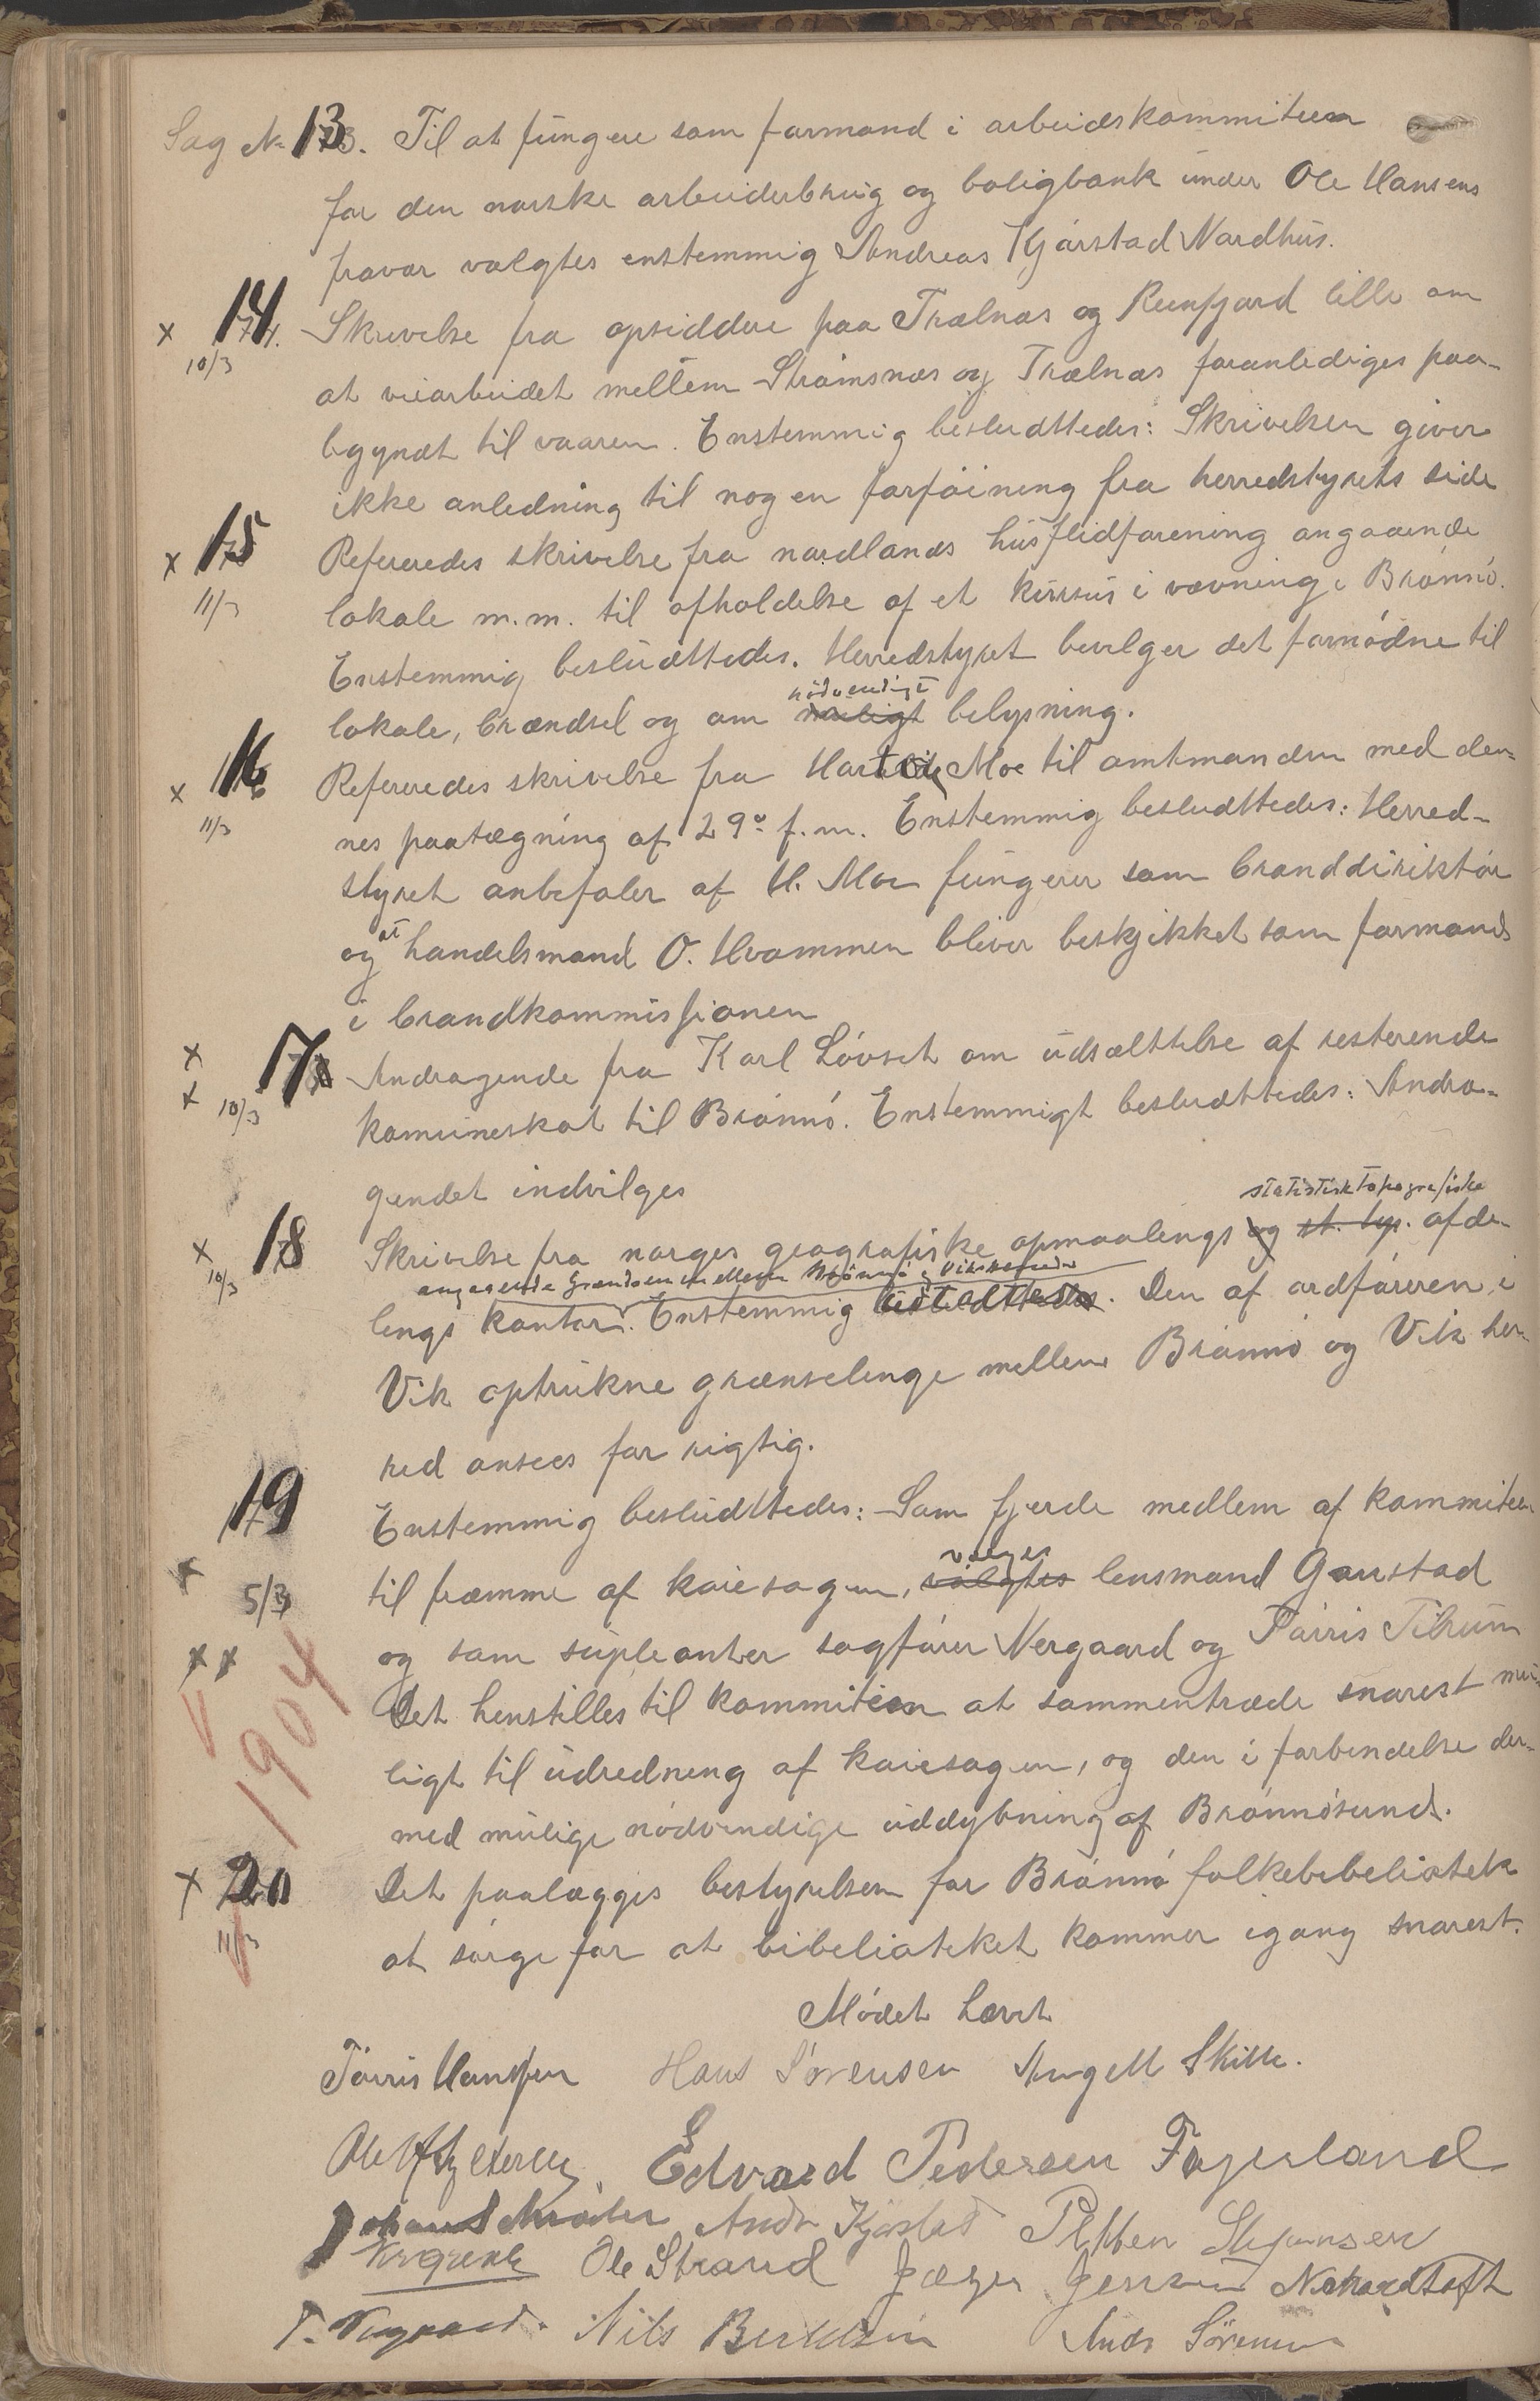 Sag N. 13. Til at fungere som formand i arbeidskommiteen
for den norske arbeiderbrug og boligbank under Ole Hansens
fravær valgtes enstemmig Andreas Kjørstad Nordhus.
x 14. Skrivelse fra opsiddere paa Trælnæs og Reinfjord lille om
10/3
at veiarbeidet mellem Strømsnæs og Trælnæs foranlediges paa-
bgyndt til vaaren. Enstemmig besludttedes: Skrivelsen giver
ikke anledning til nogen forføining fra herredstyrets side
x 15 Refereredes skrivelse fra nordlands husflidforening angaaende
11/3
lokale m.m. til afholdelse af et kursus i vævning i Brønnø.
Enstemmig besludttedes. Herredstyret bevilger det fornødne til
nødvendigt
lokale, brændsel og om muligt belysning.
x 16 Refereredes skrivelse fra Hartvig Moe til amtmanden med den-
11/3
nes paategning af 29de f.m. Enstemmig besludttedes: Herred-
styret anbefaler af H. Moe fungerer som branddirektør
og at handelsmand O. Hvammen bliver beskjikket som formand
i brandkommissjonen
x
x 17 Andragende fra Karl Løvset om udsættelse af resterende
10/3
komuneskat til Brønnø. Enstemmigt besludttedes: Andra-
gendet indvilges
statistisk topografiske
x 18 Skrivelse fra norges geografiske opmaalings og st. top. afde-
10/3
angaaende Grændsen mellem Brønnø og Vik herreder
lings kontor. Enstemmig besludttedes. Den af ordføreren i
Vik optrukne grænselinge mellem Brønnø og Vik her-
red ansees for rigtig.
19 Enstemmig besludttedes: Som fjerde medlem af kommiteen
vælges
x 5/3 til fræmme af kaiesagen, valgtes lensmand Gaustad
og som supleanter sagfører Nergaard og Tørris Tilrum
x x
V 1904
Det henstilles til kommiteen at sammentræde snarest mu-
ligt til udredning af kaiesagen, og den i forbindelse der-
med mulige nødvendige uddybning af Brønnøsund.
x 20 Det paalægges bestyrelsen for Brønnø folkebebeliotek
11/3
V
at sørge for at bibelioteket kommer igang snarest.
Mødet hævet
Tørris Hanssen Hans Sørensen Angell Skille.
Edvard Pedersen Fagerland
Johan Schrøder Andr Kjørstad Petter Skjønsen
Ole Strand Jæger Jensen
T. Nergaard. Nils Andr Sørensen